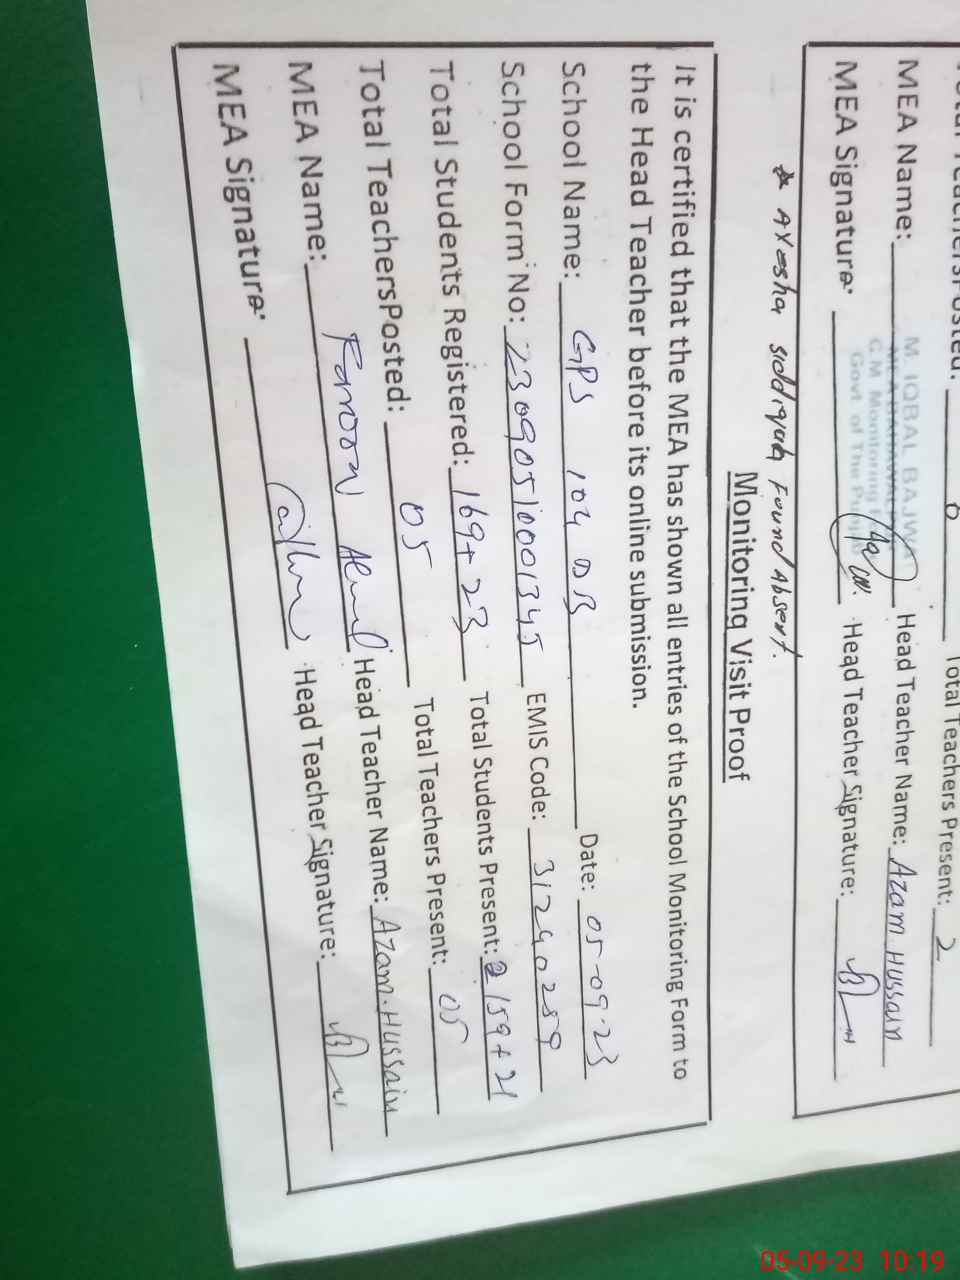 Total Teachers Present: 2
MEA Name: Head Teacher Name: Azam Hussain
M. IQBAL BAJWA
MEA BAHAWALPUR
Govt of The Punjab
MEA Signature: Head Teacher Signature:
Ayesha siddiqah Found Absent.
Monitoring Visit Proof
It is certified that the MEA has shown all entries of the School Monitoring Form to
the Head Teacher before its online submission.
School Name: GPS 104 DB Date: 05-09-23
School Form No: 23090510001345 EMIS Code: 31240259
Total Students Registered: 169+23 Total Students Present: 159+21
Total TeachersPosted: 05 Total Teachers Present: 05
MEA Name: Head Teacher Name: Azam.Hussain
MEA Signature: Head Teacher Signature:
05-09-23 10:19